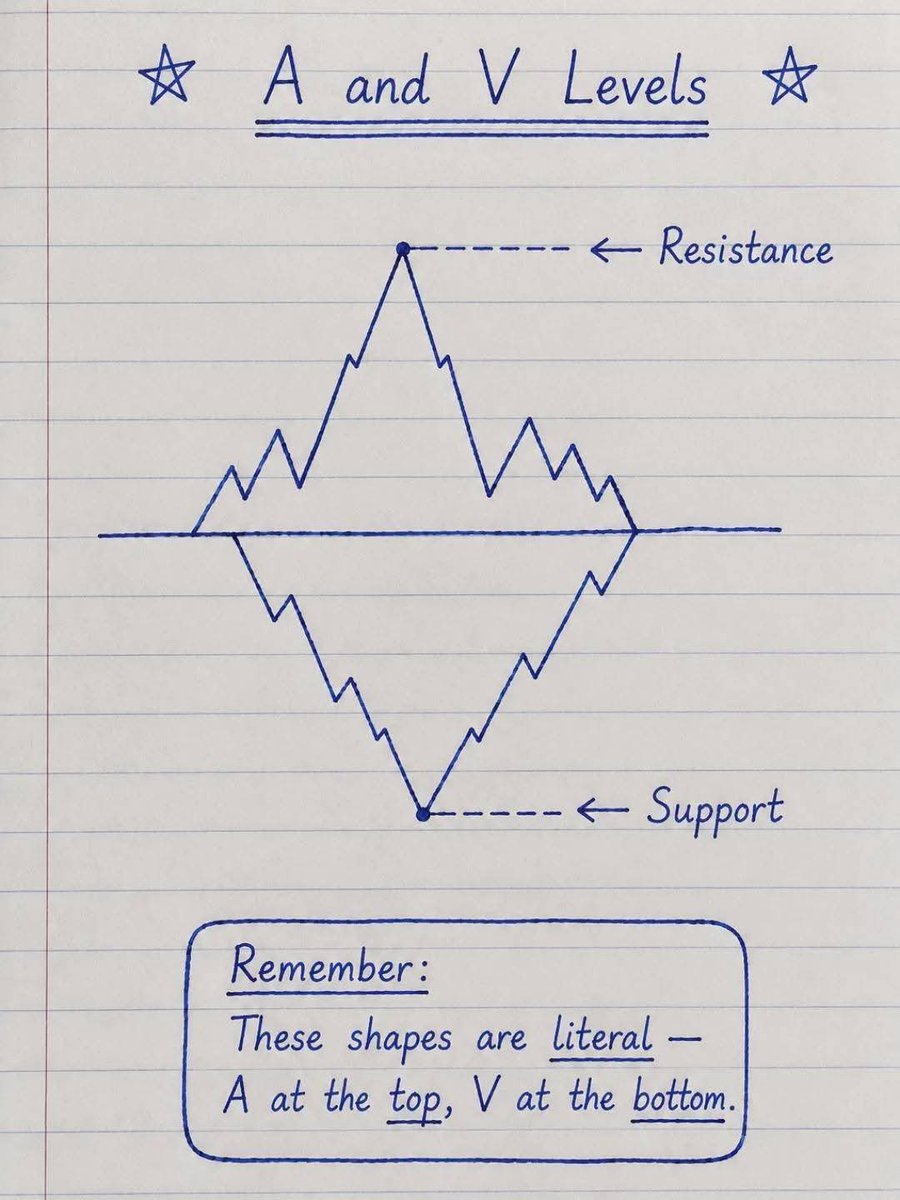 ☆ A and V Levels ☆
← Resistance
← Support
Remember:
These shapes are literal —
A at the top, V at the bottom.